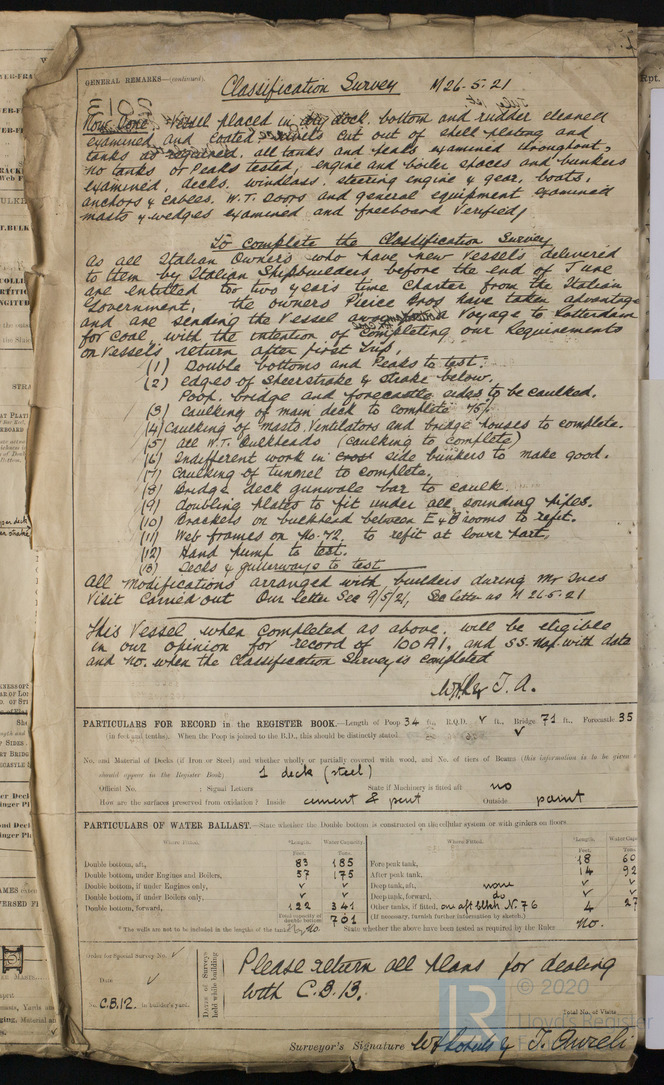 GENERAL REMARKS—(continued).
Classification Survey M 26.5.21
2013
Now Done. Vessel placed in dry dock. bottom and rudder cleaned
examined and coated. rivets cut out of shell plating and
tanks as required. all tanks and peaks examined throughout,
no tanks or Peaks tested, engine and boiler spaces and bunkers
examined, decks. windlass. steering engine & gear, boats,
anchors & cables. W.T. Doors and general equipment examined
masts & wedges examined and freeboard Verified,
To complete the Classification Survey
As all Italian Owners who have new Vessels delivered
to them by Italian Shipbuilders, before the end of June
are entitled to two years time Charter from the Italian
Government, the owners Pierce Bros have taken advantage
and are sending the Vessel Voyage to Rotterdam
for Coal, with the intention of completing our Requirements
on Vessels return after first Trip,
(1) Double bottoms and Peaks to test.
(2) edges of Sheerstrake & Strake below.
Poop. bridge and forecastle sides to be caulked.
(3) caulking of main deck to complete
(4) Caulking of masts. Ventilators and bridge houses to complete.
(5) all W.T. Bulkheads (caulking to complete)
(6) Indifferent work in cross side bunkers to make good.
(7) Caulking of tunnel to complete.
(8) Bridge deck gunwale bar to caulk.
(9) doubling plates to fit under all sounding pipes.
(10) Brackets on bulkhead between E & B rooms to refit.
(11) Web frames on No. 72. to refit at lower part.
(12) Hand pump to test.
(13) Decks & gutterways to test
All Modifications arranged with builders during Mr
Visit Carried out Our letter Sec 9/5/21, See letter us M 26.5.21
This Vessel when completed as above, will be eligible
in our opinion for record of 100A1, and SS. with date
and No. when the Classification Survey is completed
T. A.
PARTICULARS FOR RECORD in the REGISTER BOOK.—Length of Poop 34 ft., R.Q.D. ✓ ft., Bridge 71 ft., Forecastle 35
(in feet and tenths). When the Poop is joined to the B.D., this should be distinctly stated. ✓
No. and Material of Decks (if Iron or Steel) and whether wholly or partially covered with wood, and No. of tiers of Beams (this information is to be given
should appear in the Register Book) 1 deck (steel)
Official No. ; Signal Letters State if Machinery is fitted aft no
How are the surfaces preserved from oxidation? Inside cement & paint Outside paint
PARTICULARS OF WATER BALLAST.—State whether the Double bottom is constructed on the cellular system or with girders on floors.
Where Fitted. *Length. Water Capacity. Where Fitted. *Length. Water Capa
Feet. Tons. Feet. Tons
Double bottom, aft, 83 185 Fore peak tank, 18 60
Double bottom, under Engines and Boilers, 57 175 After peak tank, 14 92
Double bottom, if under Engines only, ✓ ✓ Deep tank, aft, none ✓ ✓
Double bottom, if under Boilers only, ✓ ✓ Deep tank, forward, do ✓ ✓
Double bottom, forward, 122 341 Other tanks, if fitted, on aft blkh N.76 4 27
Total capacity of double bottom 701 (If necessary, furnish further information by sketch.)
* The wells are not to be included in the lengths of the tanks. No. State whether the above have been tested as required by the Rules No.
Order for Special Survey No. ✓
Date ✓
No. C.B.12. in builder's yard.
Dates of Surveys held while building
Please return all plans for dealing
with C.B.13.
Total No. of Visits
Surveyor's Signature & T. Aureli
LR
© 2020
Lloyd's Register